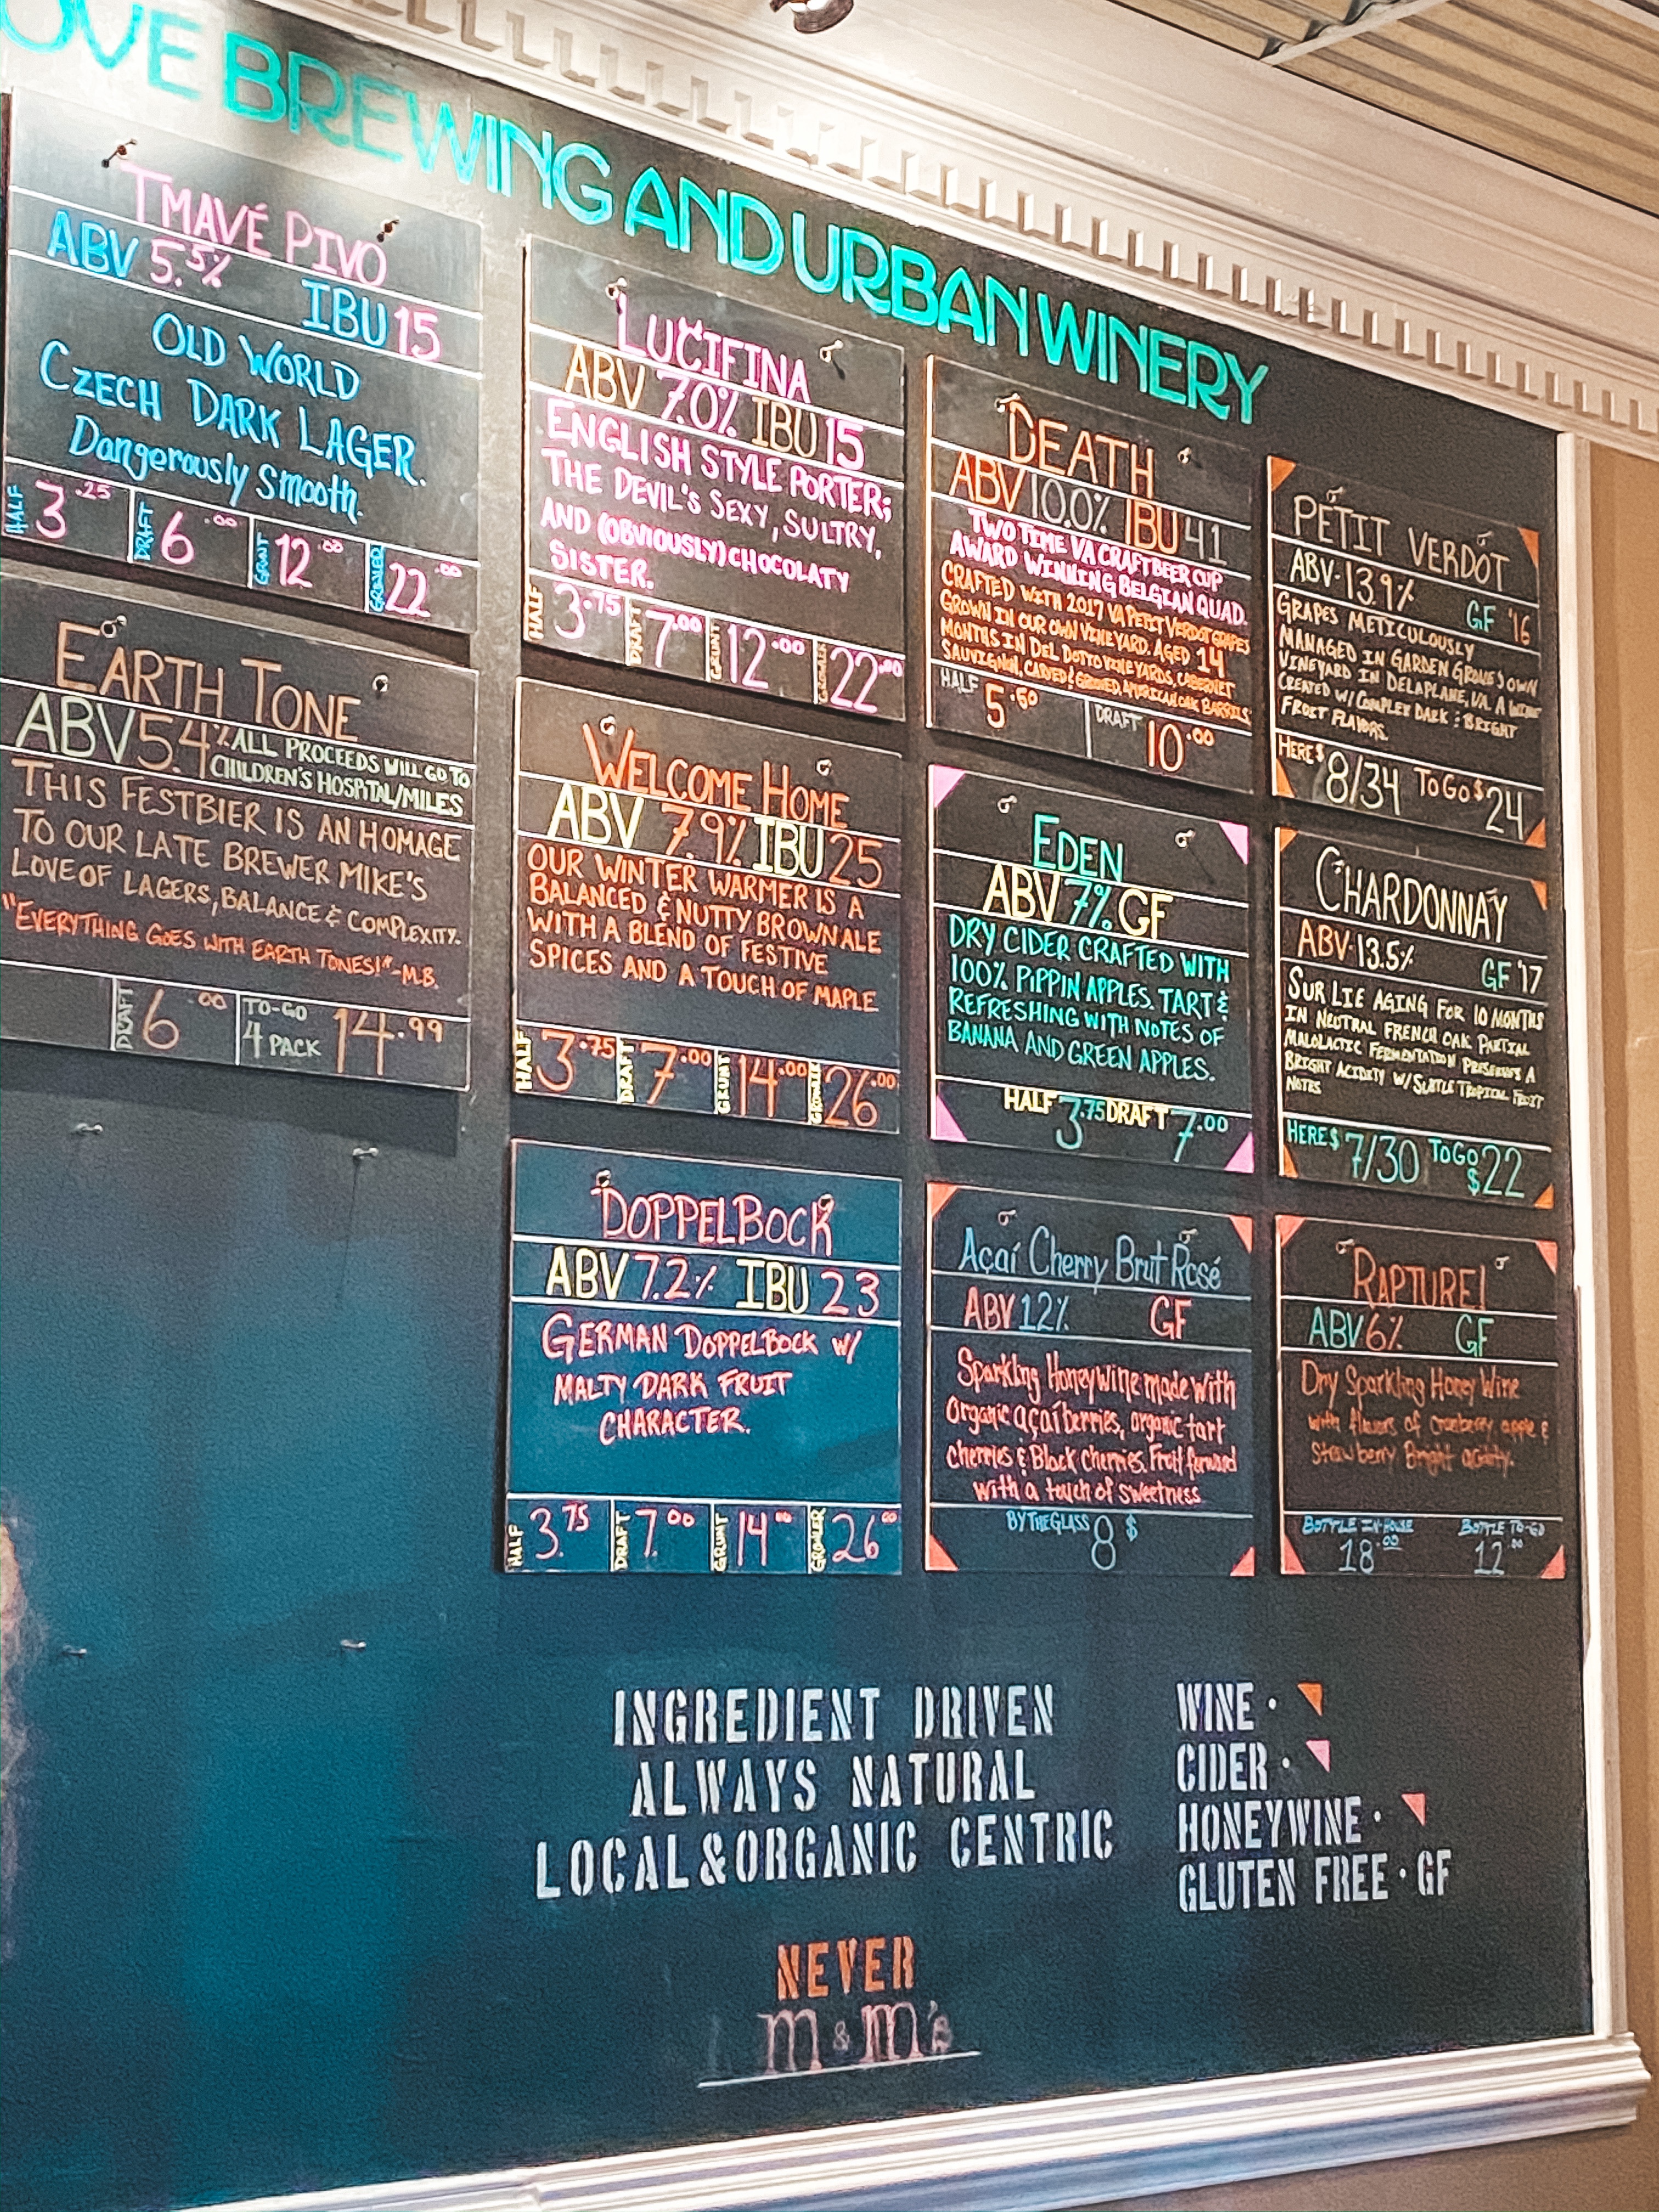 OVE BREWING AND URBAN WINERY
TMAVÉ PIVO
ABV 5.5%
IBU 15
OLD WORLD
CZECH DARK LAGER.
Dangerously Smooth.
HALF 3.25 DRAFT 6.00 GRUNT 12.00 GROWLER 22.00
EARTH TONE
ABV 5.4%
ALL PROCEEDS WILL GO TO
CHILDREN'S HOSPITAL/MILES
THIS FESTBIER IS AN HOMAGE
TO OUR LATE BREWER MIKE'S
LOVE OF LAGERS, BALANCE & COMPLEXITY.
"EVERYTHING GOES WITH EARTH TONES!" -M.B.
DRAFT 6.00 TO-GO 4 PACK 14.99
LUCIFINA
ABV 7.0% IBU 15
ENGLISH STYLE PORTER;
THE DEVIL'S SEXY, SULTRY,
AND (OBVIOUSLY) CHOCOLATY
SISTER.
HALF 3.75 DRAFT 7.00 GRUNT 12.00 GROWLER 22.00
WELCOME HOME
ABV 7.9% IBU 25
OUR WINTER WARMER IS A
BALANCED & NUTTY BROWN ALE
WITH A BLEND OF FESTIVE
SPICES AND A TOUCH OF MAPLE
HALF 3.75 DRAFT 7.00 GRUNT 14.00 GROWLER 26.00
DOPPELBOCK
ABV 7.2% IBU 23
GERMAN DOPPELBOCK W/
MALTY DARK FRUIT
CHARACTER.
HALF 3.75 DRAFT 7.00 GRUNT 14.00 GROWLER 26.00
DEATH
ABV 10.0% IBU 41
TWO TIME VA CRAFT BEER CUP
AWARD WINNING BELGIAN QUAD.
CRAFTED WITH 2017 VA PETIT VERDOT GRAPES
GROWN IN OUR OWN VINEYARD. AGED 14
MONTHS IN DEL DOTTO VINEYARDS, CABERNET
SAUVIGNON, CARVED & GROOVED, AMERICAN OAK BARRELS
HALF 5.50 DRAFT 10.00
EDEN
ABV 7% GF
DRY CIDER CRAFTED WITH
100% PIPPIN APPLES. TART &
REFRESHING WITH NOTES OF
BANANA AND GREEN APPLES.
HALF 3.75 DRAFT 7.00
Açaí Cherry Brut Rosé
ABV 12% GF
Sparkling Honeywine made with
Organic açaí berries, organic tart
cherries & Black cherries. Fruit forward
with a touch of sweetness
BY THE GLASS 8 $
PETIT VERDOT
ABV-13.9% GF '16
GRAPES METICULOUSLY
MANAGED IN GARDEN GROVE'S OWN
VINEYARD IN DELAPLANE, VA. A WINE
CREATED W/ COMPLEX DARK & BRIGHT
FRUIT FLAVORS.
HERE $ 8/34 TO GO $ 24
CHARDONNAY
ABV-13.5% GF '17
SUR LIE AGING FOR 10 MONTHS
IN NEUTRAL FRENCH OAK. PARTIAL
MALOLACTIC FERMENTATION PRESERVES A
BRIGHT ACIDITY W/ SUBTLE TROPICAL FRUIT
NOTES
HERE $ 7/30 TO GO $ 22
RAPTURE!
ABV 6% GF
Dry Sparkling Honey Wine
with flavors of cranberry apple &
Strawberry Bright acidity.
BOTTLE IN-HOUSE 18.00 BOTTLE TO-GO 12.00
INGREDIENT DRIVEN
ALWAYS NATURAL
LOCAL & ORGANIC CENTRIC
NEVER
m & m's
WINE ·
CIDER ·
HONEYWINE ·
GLUTEN FREE · GF